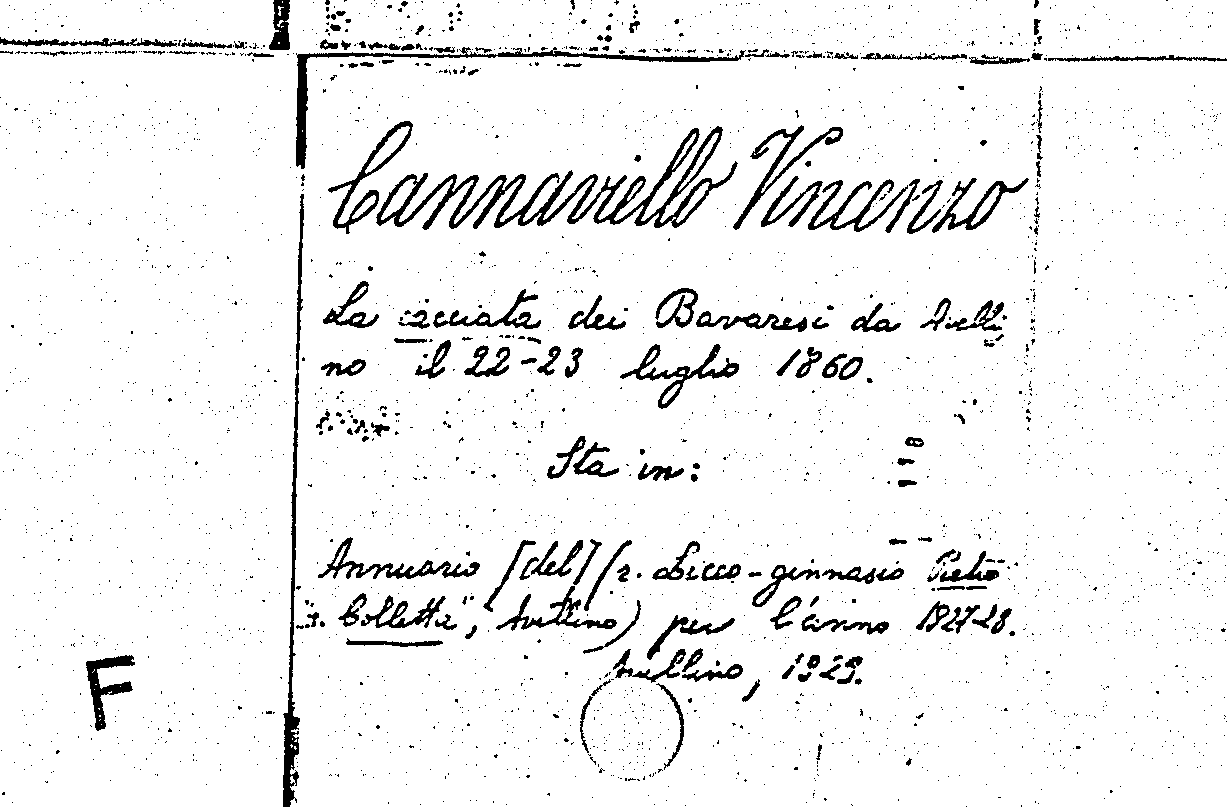 Cannaviello Vincenzo
La cacciata dei Bavaresi da Avelli
no il 22-23 luglio 1860.
Sta in:
Annuario [del] (r. Liceo-ginnasio Pietro
Colletta", Avellino) per l'anno 1927-28.
Avellino, 1929.
F